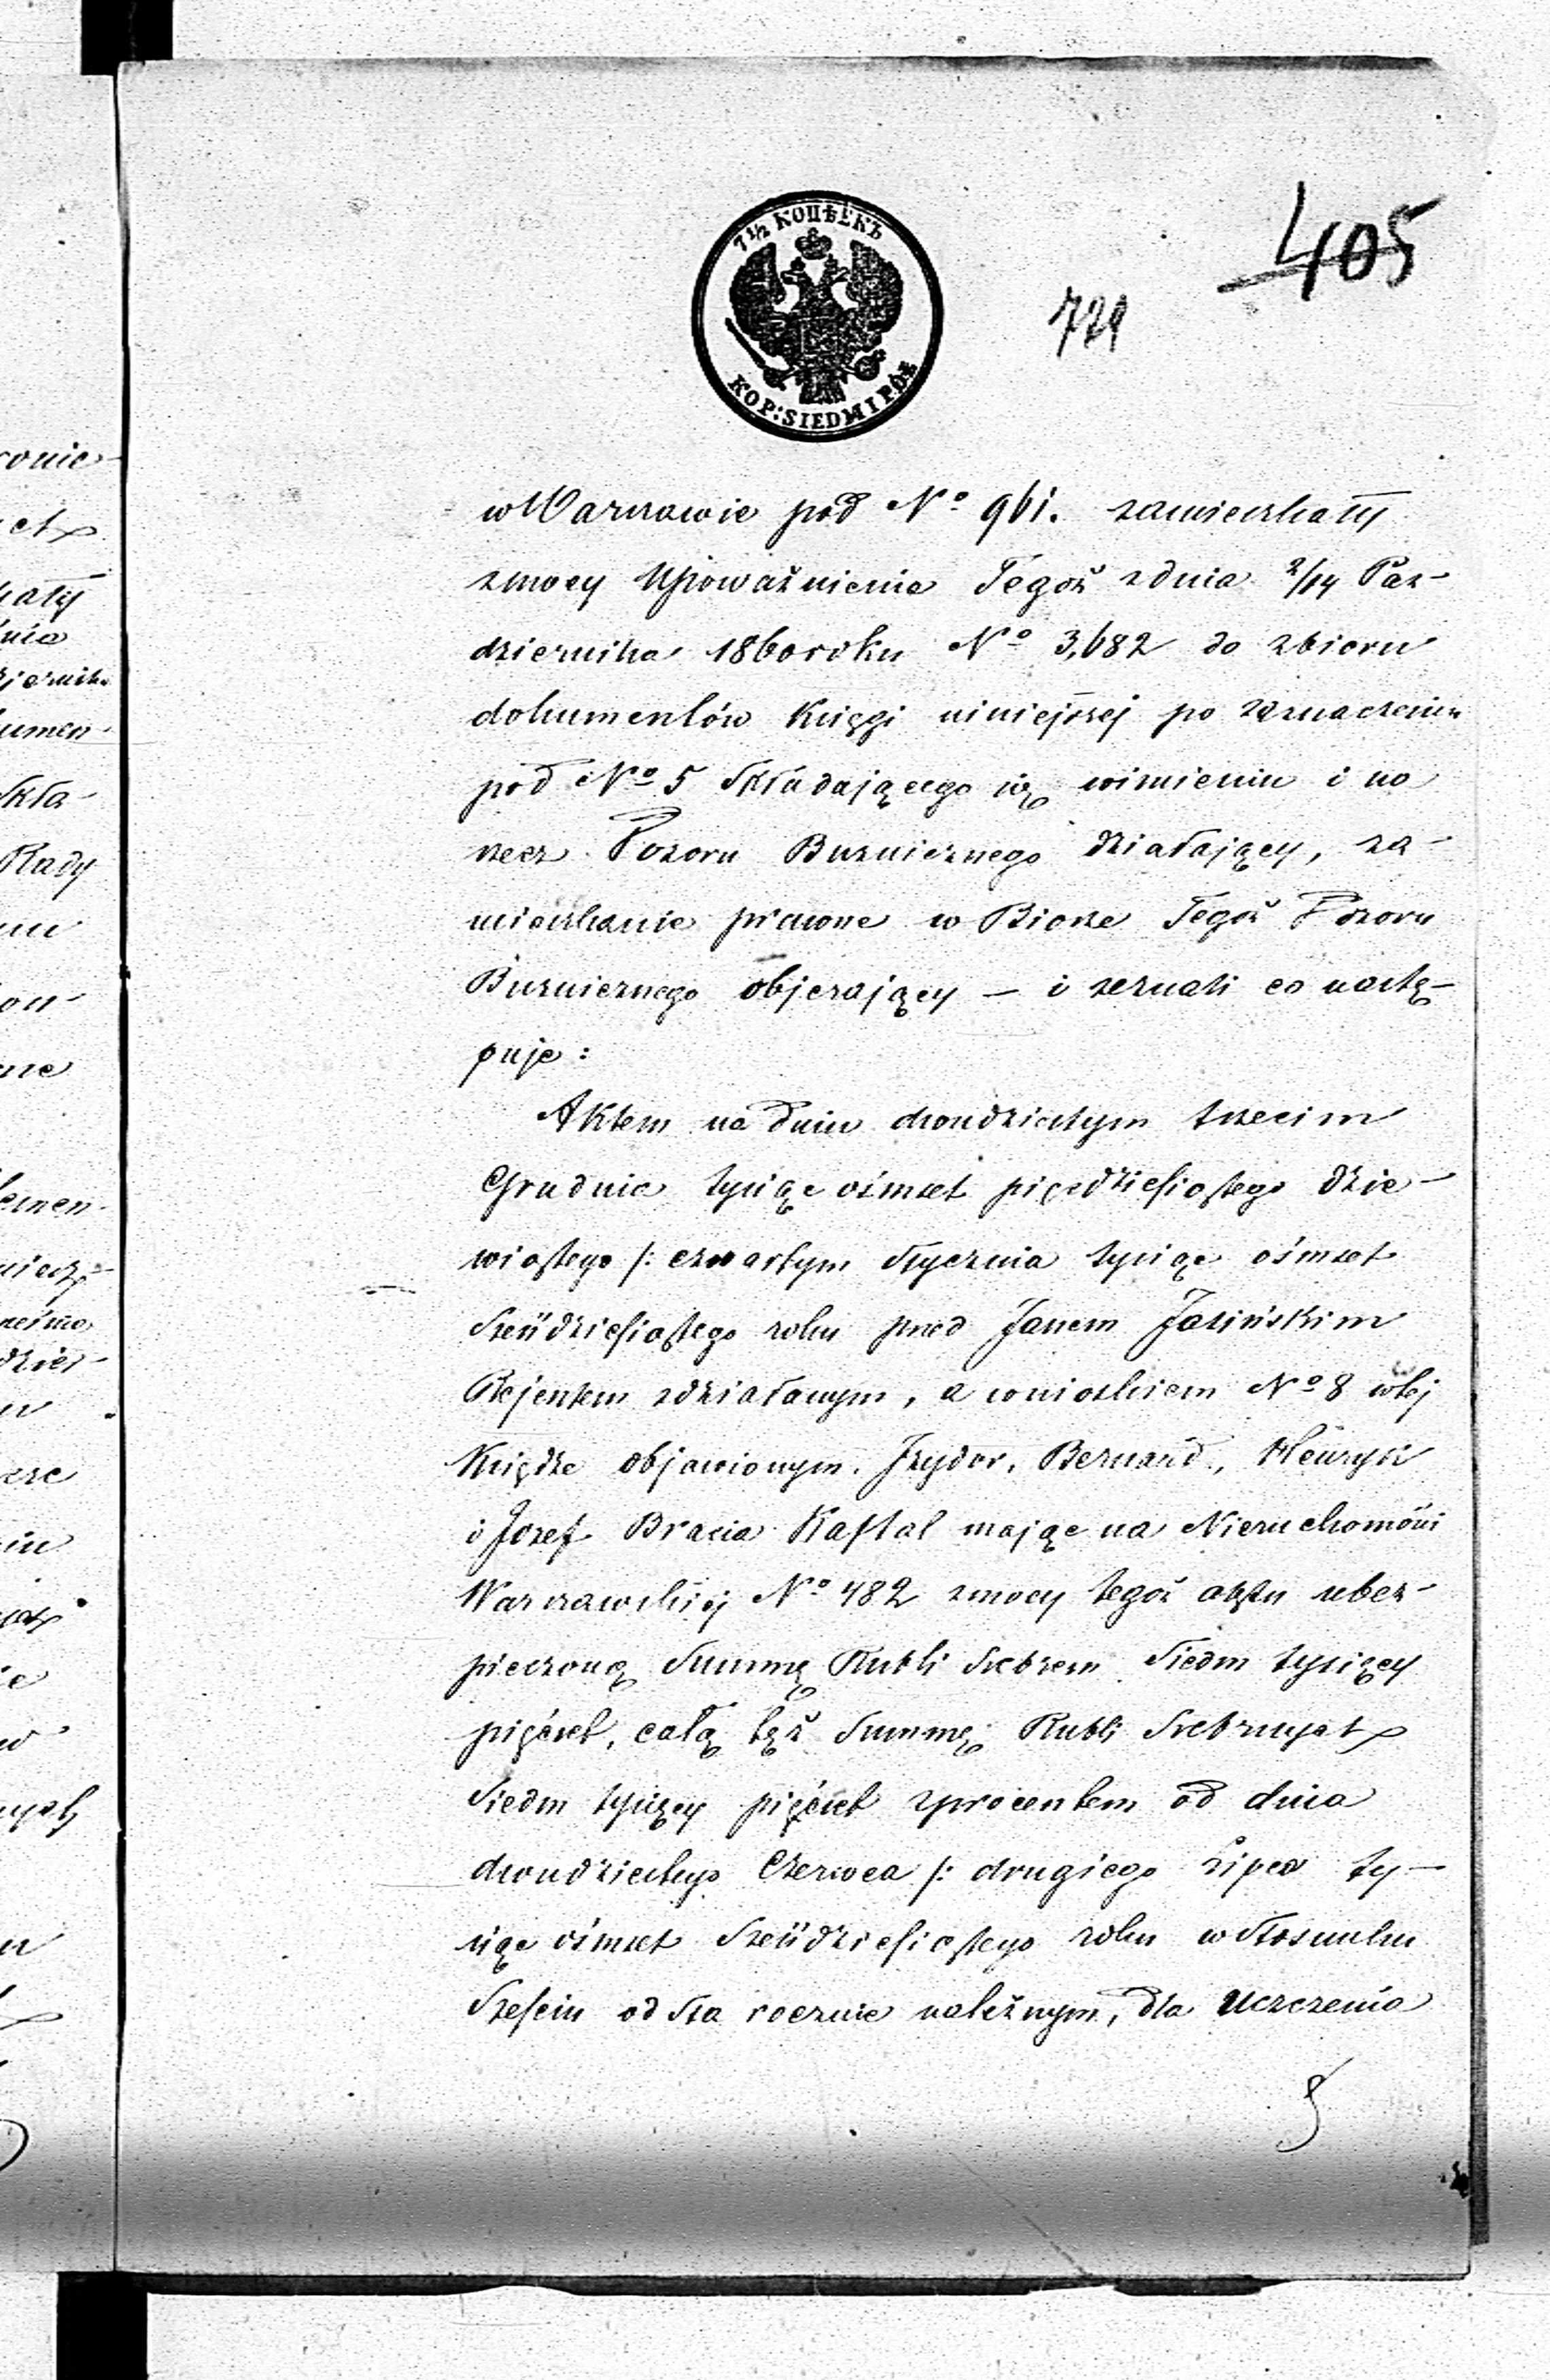 7½ КОПѢЕКЪ
KOP: SIEDM I PÓŁ
405
729
w Warszawie pod No 961. zamieszkały
z mocy Upoważnienia Tegoż z dnia 2/14 Paz-
dziernika 1860 roku No 3,682 do zbioru
dokumentów Księgi niniejszej po zaznaczeniu
pod No 5 Składającego się w imieniu i na
rzecz Dozoru Bużnicznego działający, za-
mieszkanie prawne w Biorze Tegoż Dozoru
Bużnicznego objerający — i zeznali co nastę-
puje:
Aktem na dniu dwudziestym trzecim
Grudnia tysiąc ośmset pięćdziesiątego dzie-
wiątego /: czwartym Stycznia tysiąc ośmset
Sześdziesiątego roku przed Janem Jasińskim
Rejentem zdziałanym, a wnioskiem No 8 w tej
Księdze objawionym. Izydor, Bernard, Henryk
i Jozef Bracia Kaftal mając na Nieruchomości
Warszawskiej No 482 z mocy tegoż aktu ubez-
pieczoną Summę Rubli Srebrem Siedm tysięcy
pięćset, całą tęż Summę Rubli Srebrnych
Siedm tysięcy pięćset z procentem od dnia
dwudziestego Czerwca /: drugiego Lipca ty-
siąc ośmset Sześdziesiątego roku w Stosunku
Sześciu od Sta rocznie należnym, dla Uczczenia